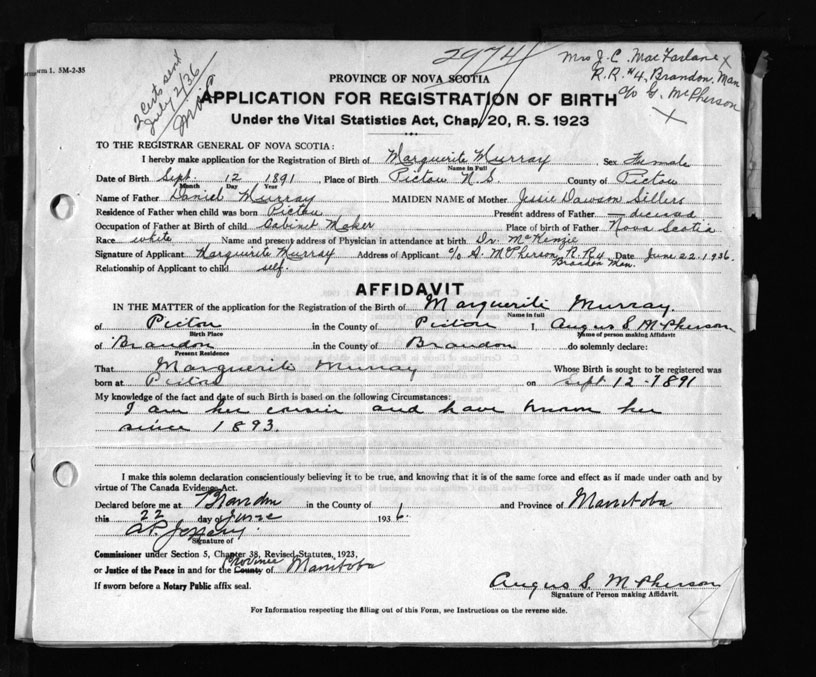 2974
Mrs J. C. MacFarlane X
R.R. #4, Brandon, Man
c/o G. McPherson
X
2 Certs send
July 2/36
orm 1. 5M-2-35
PROVINCE OF NOVA SCOTIA
APPLICATION FOR REGISTRATION OF BIRTH
Under the Vital Statistics Act, Chap. 20, R. S. 1923
TO THE REGISTRAR GENERAL OF NOVA SCOTIA:
I hereby make application for the Registration of Birth of Marguerite Murray Sex Female
Name in Full
Date of Birth Sept. 12 1891, Place of Birth Pictou N.S County of Pictou
Month Day Year
Name of Father Daniel Murray MAIDEN NAME of Mother Jessie Dawson Sellers
Residence of Father when child was born Pictou Present address of Father — diceased
Occupation of Father at Birth of child Cabinet Maker Place of birth of Father Nova Scotia
Race white Name and present address of Physician in attendance at birth Dr. McKenzie
Signature of Applicant Marguerite Murray Address of Applicant c/o S. McPherson, R.R.4, Date June 22. 1936.
Brandon Man.
Relationship of Applicant to child self.
AFFIDAVIT
IN THE MATTER of the application for the Registration of the Birth of Marguerite Murray.
Name in full
of Pictou in the County of Pictou I, Angus S McPherson
Birth Place Name of person making Affidavit
of Brandon in the County of Brandon do solemnly declare:
Present Residence
That Marguerite Murray Whose Birth is sought to be registered was
born at Pictou on Sept 12 - 1891
My knowledge of the fact and date of such Birth is based on the following Circumstances:
I am her cousin and have known her
since 1893.
I make this solemn declaration conscientiously believing it to be true, and knowing that it is of the same force and effect as if made under oath and by
virtue of The Canada Evidence Act.
Declared before me at Brandon in the County of and Province of Manitoba
this 22 day of June 1936.
Signature of
Commissioner under Section 5, Chapter 38, Revised Statutes, 1923,
Province
or Justice of the Peace in and for the County of Manitoba
If sworn before a Notary Public affix seal.
Angus S McPherson
Signature of Person making Affidavit.
For Information respecting the filling out of this Form, see Instructions on the reverse side.